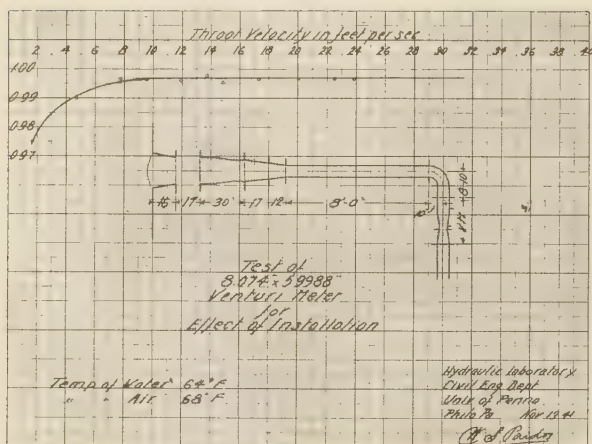 Throat Velocity in feet per sec
2 4 6 8 10 12 14 16 18 20 22 24 26 28 30 32 34 36 38 40
1.00
0.99
0.98
0.97
16" 17" 30" 17 12" 8'-0"
Test of
8.074" x 5.9988"
Venturi Meter
for
Effect of Installation
Temp of Water 64° F
" " Air 68° F
Hydraulic Laboratory
Civil Eng Dept
Univ of Penna
Phila Pa Nov 19 41
W. S. Pardoe